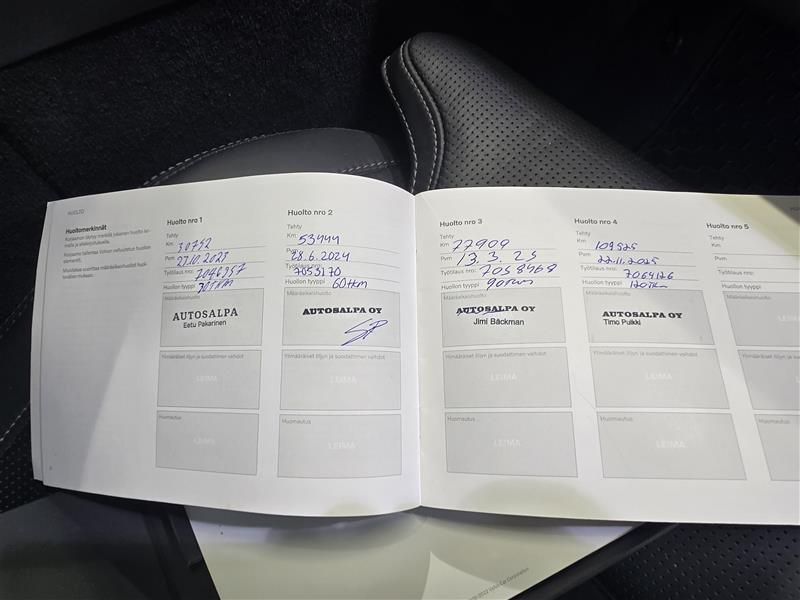 HUOLTO
Huoltomerkinnät
Huolto nro 1
Tehty
Km 30752
Pvm 27.10.2023
Työtilaus nro: 7046957
Huollon tyyppi 30TKM
Määräaikaishuolto
AUTOSALPA
Eetu Pakarinen
Ylimääräiset öljyn ja suodattimen vaihdot
LEIMA
Huomautus
LEIMA
Huolto nro 2
Tehty
Km 53444
Pvm 28.6.2024
Työtilaus nro: 7053170
Huollon tyyppi 60tkm
Määräaikaishuolto
AUTOSALPA OY
Ylimääräiset öljyn ja suodattimen vaihdot
LEIMA
Huomautus
LEIMA
Huolto nro 3
Tehty
Km 77909
Pvm 13.3.25
Työtilaus nro: 7058468
Huollon tyyppi 90tkm
Määräaikaishuolto
AUTOSALPA OY
Jimi Bäckman
Ylimääräiset öljyn ja suodattimen vaihdot
LEIMA
Huomautus
LEIMA
Huolto nro 4
Tehty
Km 109525
Pvm 22.11.2025
Työtilaus nro: 7064126
Huollon tyyppi 120TKM
Määräaikaishuolto
AUTOSALPA OY
Timo Pulkki
Ylimääräiset öljyn ja suodattimen vaihdot
LEIMA
Huomautus
LEIMA
Huolto nro 5
Tehty
Km
Pvm
Työtilaus nro:
Huollon tyyppi
Määräaikaishuolto
Ylimääräiset
LEIMA
Huomautus
2022 Volvo Car Corporation